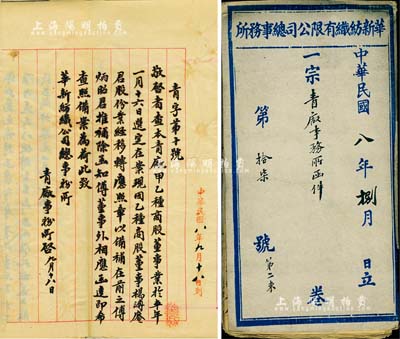 青字第十號
敬啓者查本青廠甲乙種商股董事業於本年
一月十六日選定在案現因乙種商股董事楊
君股份業經移轉應照章以備補在前之傅
炳昭君推補除函知傅董事外相應函達即希
查照備案為荷此致
華新紡織公司總事務所
青廠事務所啓 九月十八日
中華民國八年九月十八日到
華新紡織有限公司總事務所
中華民國八年捌月 日立
一宗青廠事務所函件 卷
第拾柒號
第二束
上海陽明拍賣